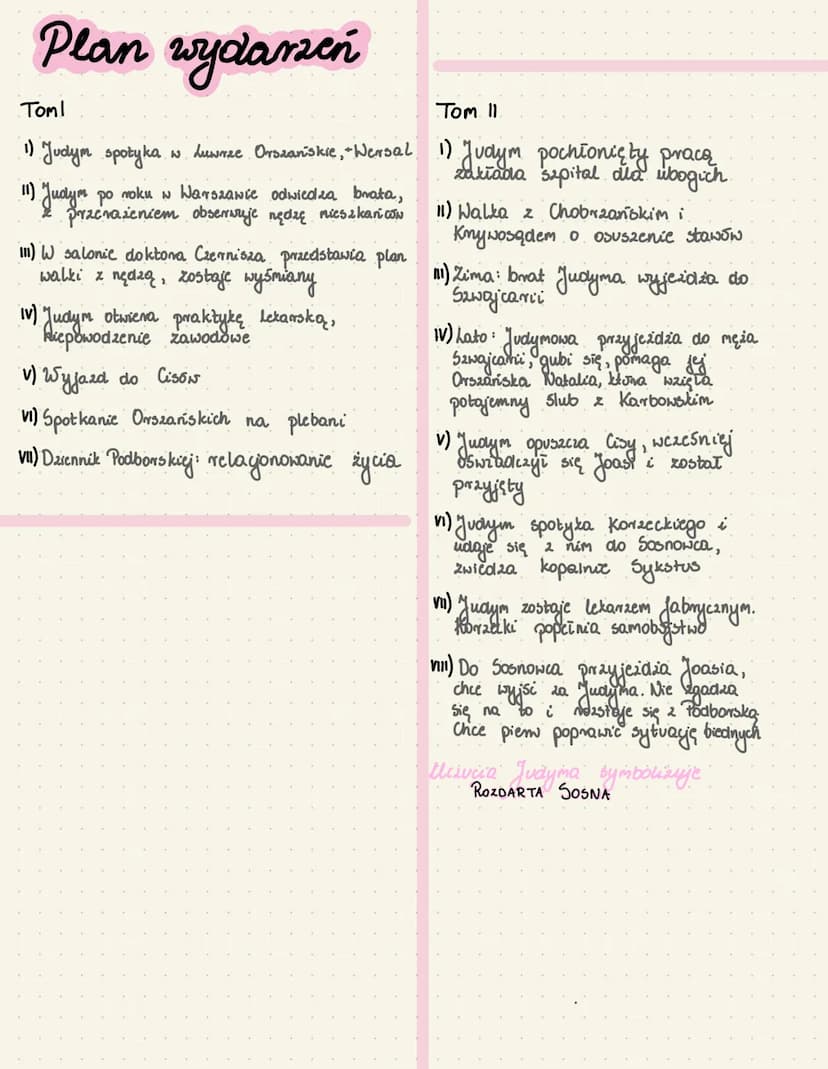 Plan wydarzeń
Tom I
I) Judym spotyka w Luwrze Orszańskie,→Wersal
II) Judym po roku w Warszawie odwiedza brata,
z przerażeniem obserwuje nędzę mieszkańców
III) W salonie doktora Czernisza przedstawia plan
walki z nędzą, zostaje wyśmiany
IV) Judym otwiera praktykę lekarską,
Niepowodzenie zawodowe
V) Wyjazd do Cisów
VI) Spotkanie Orszańskich na plebani
VII) Dziennik Podborskiej: relacjonowanie życia
Tom II
I) Judym pochłonięty pracą
zakłada szpital dla ubogich
II) Walka z Chobrzańskim i
Krzywosądem o osuszenie stawów
III) Zima: brat Judyma wyjeżdża do
Szwajcarii
IV) Lato: Judymowa przyjeżdża do męża
Szwajcarii, gubi się, pomaga jej
Orszańska Natalia, która wzięła
potajemny ślub z Karbowskim
V) Judym opuszcza Cisy, wcześniej
oświadczył się Joasi i został
przyjęty
VI) Judym spotyka Korzeckiego i
udaje się z nim do Sosnowca,
zwiedza kopalnie Sykstus
VII) Judym zostaje lekarzem fabrycznym.
Korzecki popełnia samobójstwo
VIII) Do Sosnowca przyjeżdża Joasia,
chce wyjść za Judyma. Nie zgadza
się na to i rozstaje się z Podborską
Chce pierw poprawić sytuację biednych
Uczucia Judyma symbolizuje
ROZDARTA SOSNA